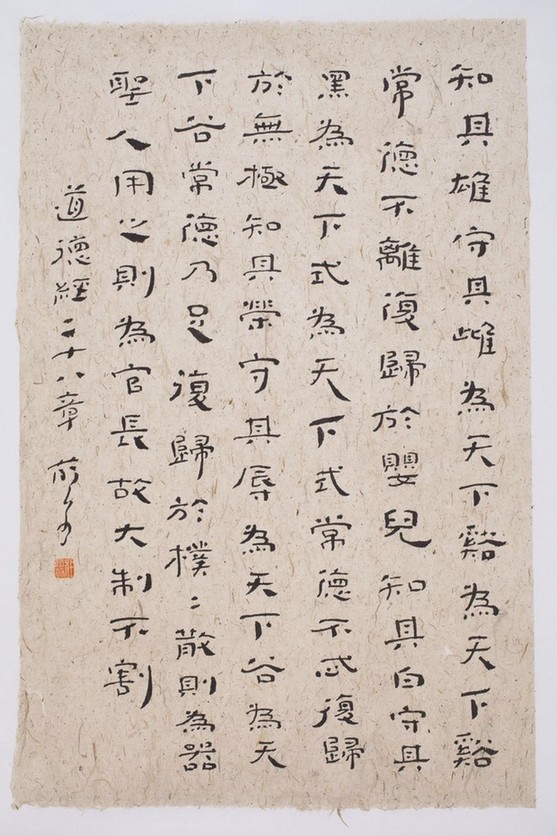 知其雄守其雌為天下谿為天下谿
常德不離復歸於嬰兒知其白守其
黑為天下式為天下式常德不忒復歸
於無極知其榮守其辱為天下谷為天
下谷常德乃足復歸於樸〻散則為器
聖人用之則為官長故大制不割
道德經二十八章